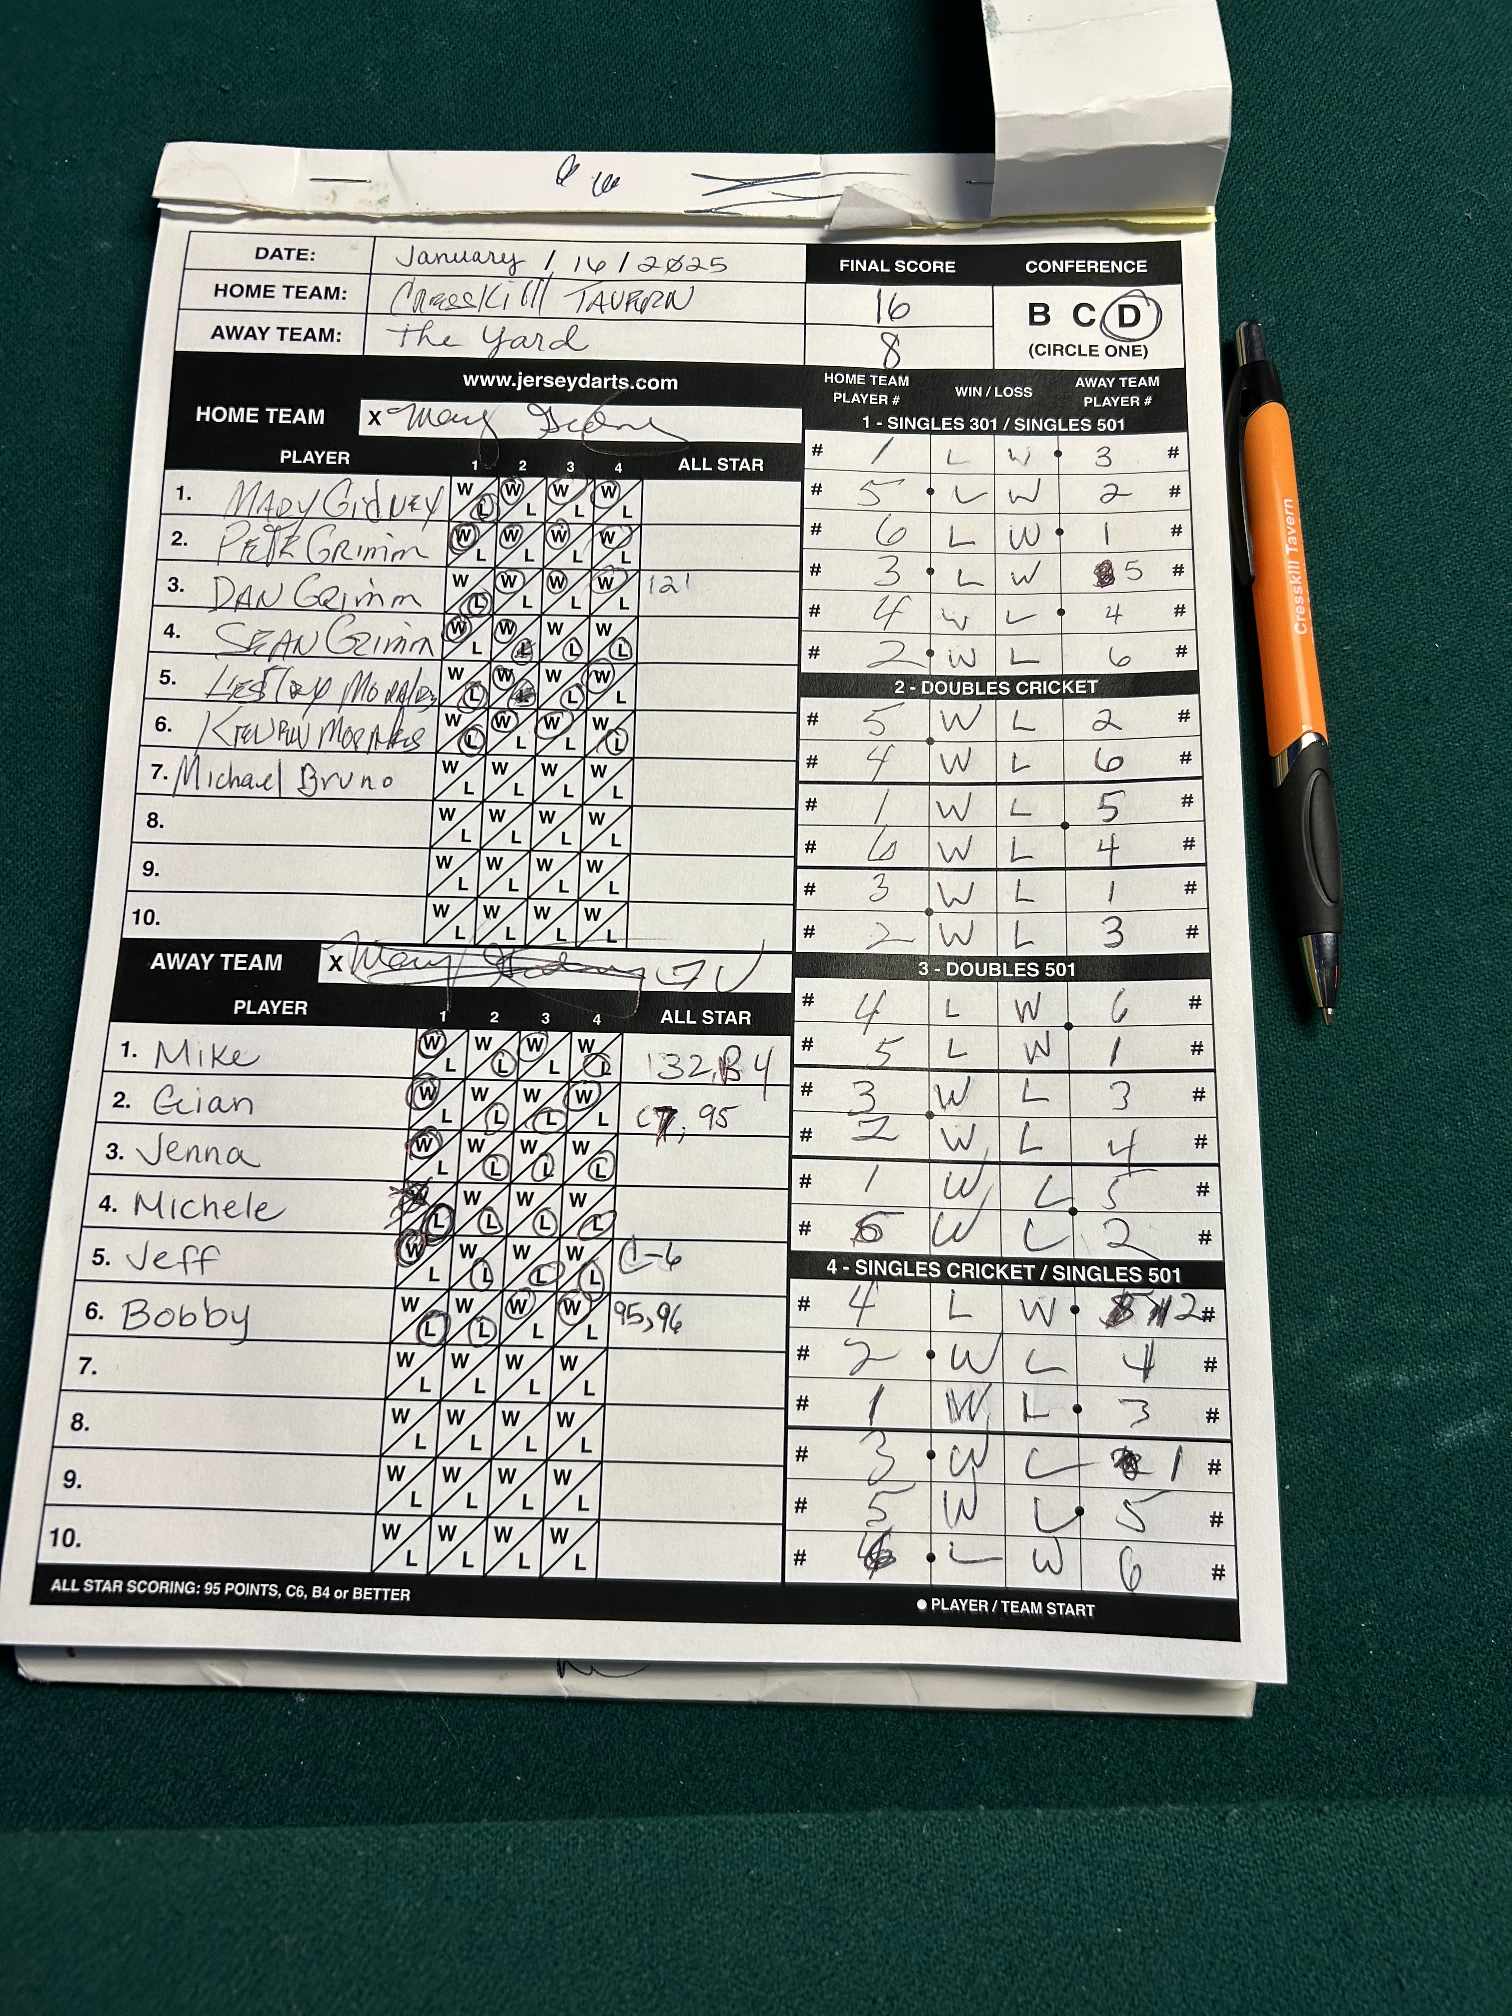 DATE: January / 16 / 2025
HOME TEAM: Cresskill TAVERN
AWAY TEAM: The Yard
FINAL SCORE CONFERENCE
16
8
B C D
(CIRCLE ONE)
www.jerseydarts.com
HOME TEAM X Mary Gidney
PLAYER 1 2 3 4 ALL STAR
1. MARY GidNEY W L W L W L W L
2. PETE GRimm W L W L W L W L
3. DAN GRimm W L W L W L W L 121
4. SEAN GRimm W L W L W L W L
5. W L W L W L W L
6. W L W L W L W L
7. Michael Bruno W L W L W L W L
8. W L W L W L W L
9. W L W L W L W L
10. W L W L W L W L
AWAY TEAM X JV
PLAYER 1 2 3 4 ALL STAR
1. Mike W L W L W L W L 132, B4
2. Gian W L W L W L W L C7, 95
3. Jenna W L W L W L W L
4. Michele W L W L W L W L
5. Jeff W L W L W L W L C-6
6. Bobby W L W L W L W L 95, 96
7. W L W L W L W L
8. W L W L W L W L
9. W L W L W L W L
10. W L W L W L W L
ALL STAR SCORING: 95 POINTS, C6, B4 or BETTER
HOME TEAM PLAYER # WIN / LOSS AWAY TEAM PLAYER #
1 - SINGLES 301 / SINGLES 501
# 1 L W 3 #
# 5 L W 2 #
# 6 L W 1 #
# 3 L W 5 #
# 4 W L 4 #
# 2 W L 6 #
2 - DOUBLES CRICKET
# 5 W L 2 #
# 4 W L 6 #
# 1 W L 5 #
# 6 W L 4 #
# 3 W L 1 #
# 2 W L 3 #
3 - DOUBLES 501
# 4 L W 6 #
# 5 L W 1 #
# 3 W L 3 #
# 2 W L 4 #
# 1 W L 5 #
# 6 W L 2 #
4 - SINGLES CRICKET / SINGLES 501
# 4 L W 2 #
# 2 W L 4 #
# 1 W L 3 #
# 3 W L 1 #
# 5 W L 5 #
# 6 L W 6 #
● PLAYER / TEAM START
Cresskill Tavern